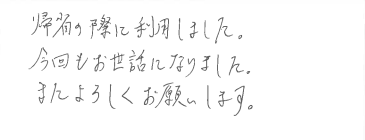 帰省の際に利用しました。
今回もお世話になりました。
またよろしくお願いします。